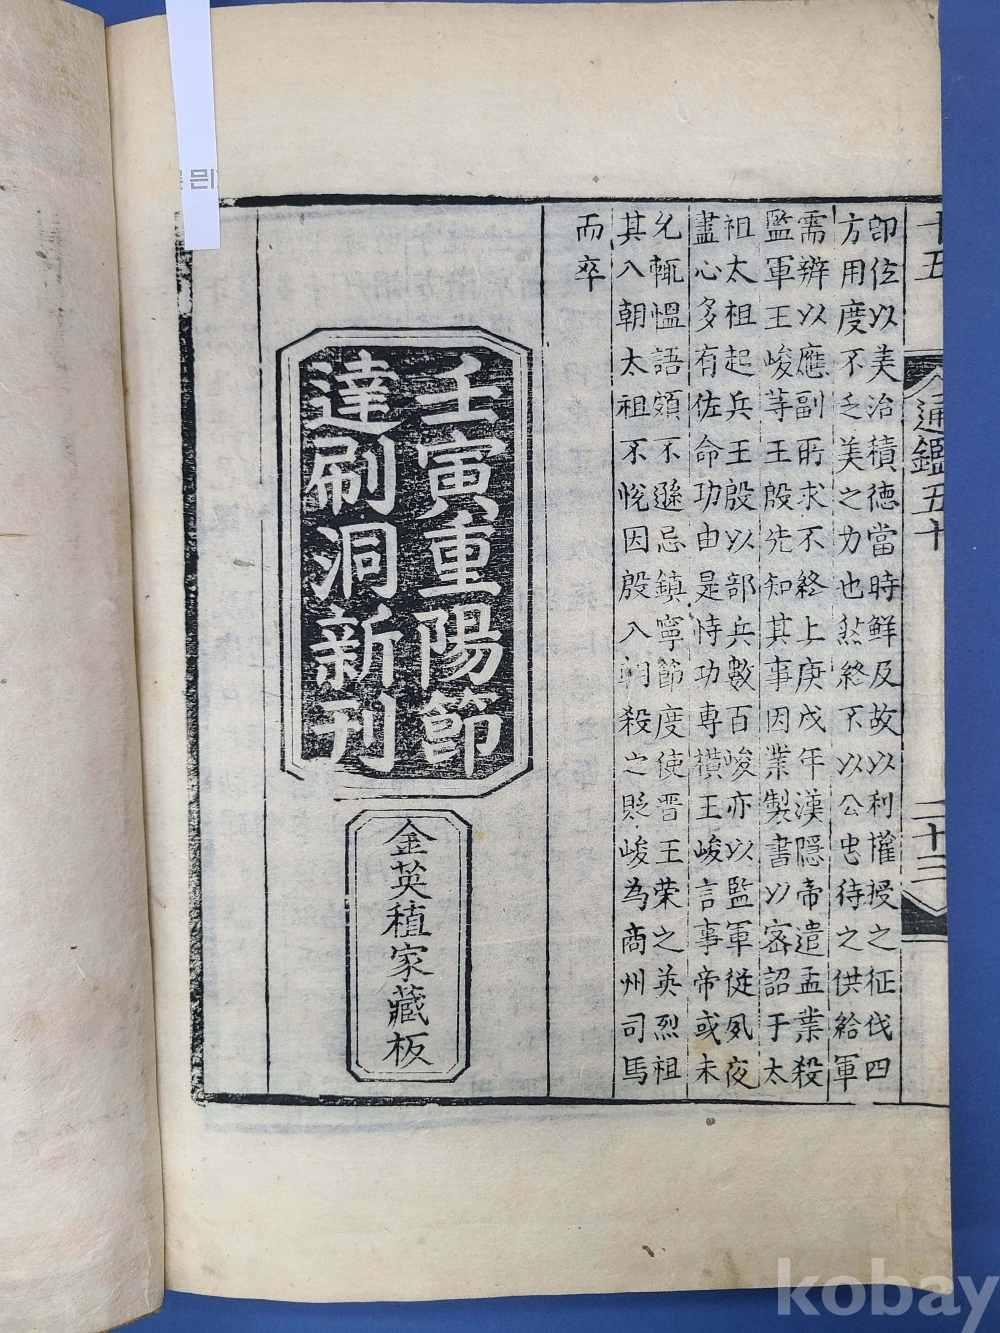 十五
通鑑五十
二十三
即位以美治積德當時鮮及故以利權授之征伐四
方用度不乏美之力也然終不以公忠待之供給軍
需辦以應副所求不終上庚戌年漢隱帝遣孟業殺
監軍王峻等王殷先知其事因業製書以密詔于太
祖太祖起兵王殷以部兵數百峻亦以監軍從夙夜
盡心多有佐命功由是恃功專橫王峻言事帝或未
允輒慍語頗不遜忌鎮寧節度使晋王荣之英烈祖
其入朝太祖不悅因殷入朝殺之貶峻為商州司馬
而卒
壬寅重陽節
達刷洞新刊
金英稙家藏板
kobay